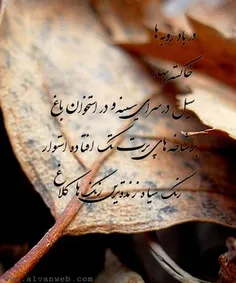 در باد روبه ها
خاکستر بهار
سیل در سرای سینه و در استخوان باغ
بر شاخه های پرت تک افتاده استوار
رنگ سیاه زنده ترین رنگ ها کلاغ
www.alvanweb.com